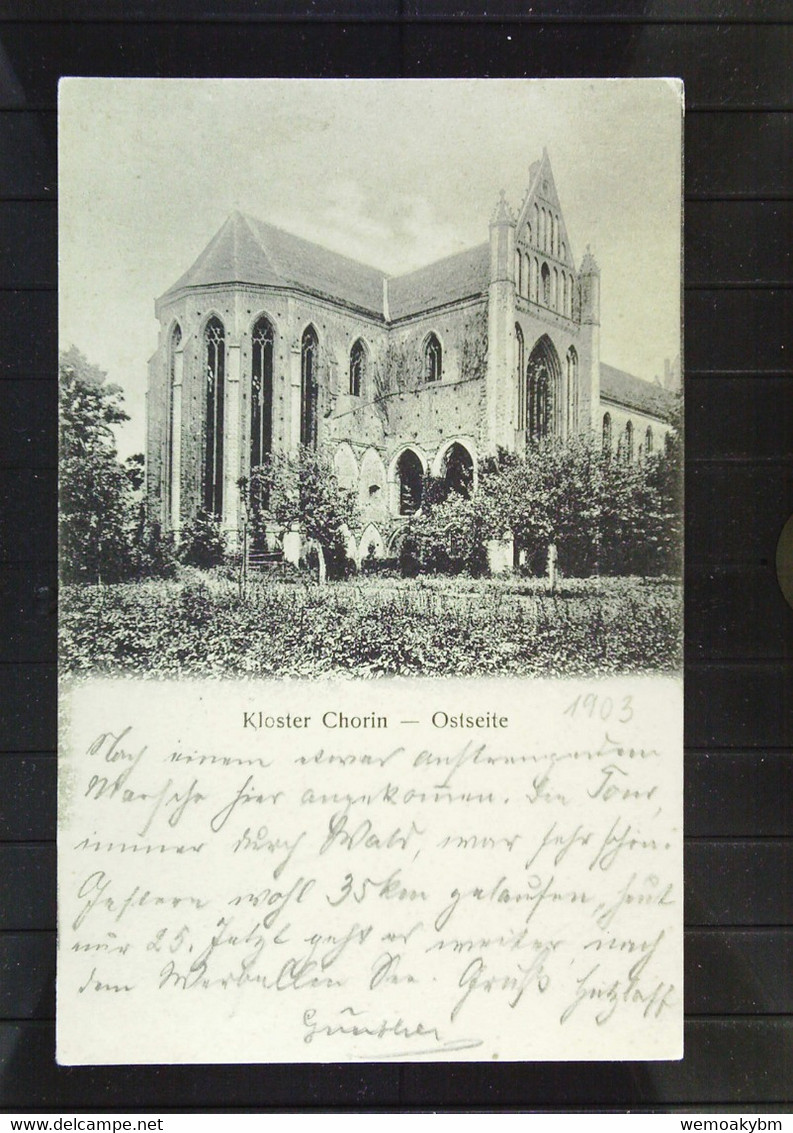 Kloster Chorin — Ostseite
1903
Nach einem etwas anstrengendem
Marsche hier angekommen. Die Tour,
immer durch Wald, war sehr schön.
Gestern wohl 35 km gelaufen, heut
nur 25. Jetzt geht es weiter nach
dem Werbellin See. Gruß
Günther
wemoakybm